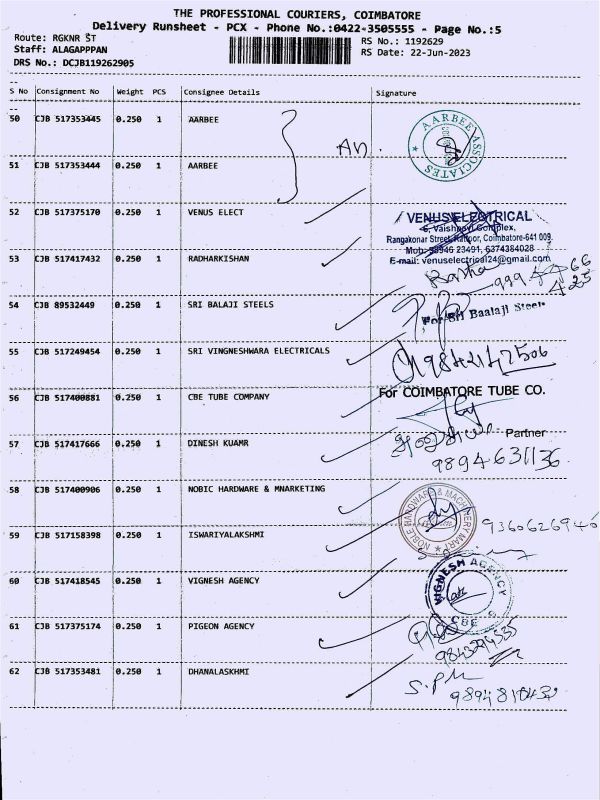 THE PROFESSIONAL COURIERS, COIMBATORE
Delivery Runsheet - PCX - Phone No.:0422-3505555 - Page No.:5
Route: RGKNR ST
RS No.: 1192629
Staff: ALAGAPPPAN
RS Date: 22-Jun-2023
DRS No.: DCJB119262905
S No Consignment No Weight PCS Consignee Details Signature
50 CJB 517353445 0.250 1 AARBEE
AARBEE ASSOCIATES
51 CJB 517353444 0.250 1 AARBEE
52 CJB 517375170 0.250 1 VENUS ELECT
VENUS ELECTRICAL
6, Vaishnavi Complex,
Rangakonar Street, Kattoor, Coimbatore-641 009.
Mob: 98946 23491, 6374384028
E-mail: venuselectrical24@gmail.com
53 CJB 517417432 0.250 1 RADHARKISHAN
54 CJB 89532449 0.250 1 SRI BALAJI STEELS
For Sri Baalaji Steel
55 CJB 517249454 0.250 1 SRI VINGNESHWARA ELECTRICALS
9842147506
56 CJB 517400881 0.250 1 CBE TUBE COMPANY
For COIMBATORE TUBE CO.
Partner
57 CJB 517417666 0.250 1 DINESH KUAMR
9894631136
58 CJB 517400906 0.250 1 NOBIC HARDWARE & MNARKETING
NOBLE HARDWARE & MACHINERY MART
9360626946
59 CJB 517158398 0.250 1 ISWARIYALAKSHMI
60 CJB 517418545 0.250 1 VIGNESH AGENCY
VIGNESH AGENCY
CBE
61 CJB 517375174 0.250 1 PIGEON AGENCY
9843294535
62 CJB 517353481 0.250 1 DHANALASKHMI
S.PM